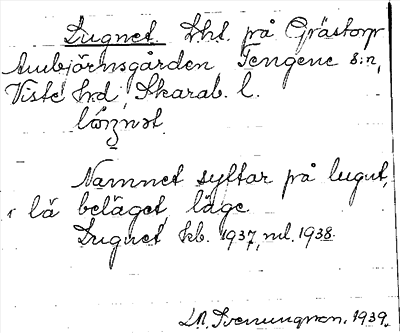 Lugnet. Lht. på Grästorp
Ambjörnsgården Tengene s:n,
Viste hd, Skarab. l.
Namnet syftar på lugnt,
i lä beläget läge
Lugnet kb. 1937, ml. 1938.
1939.